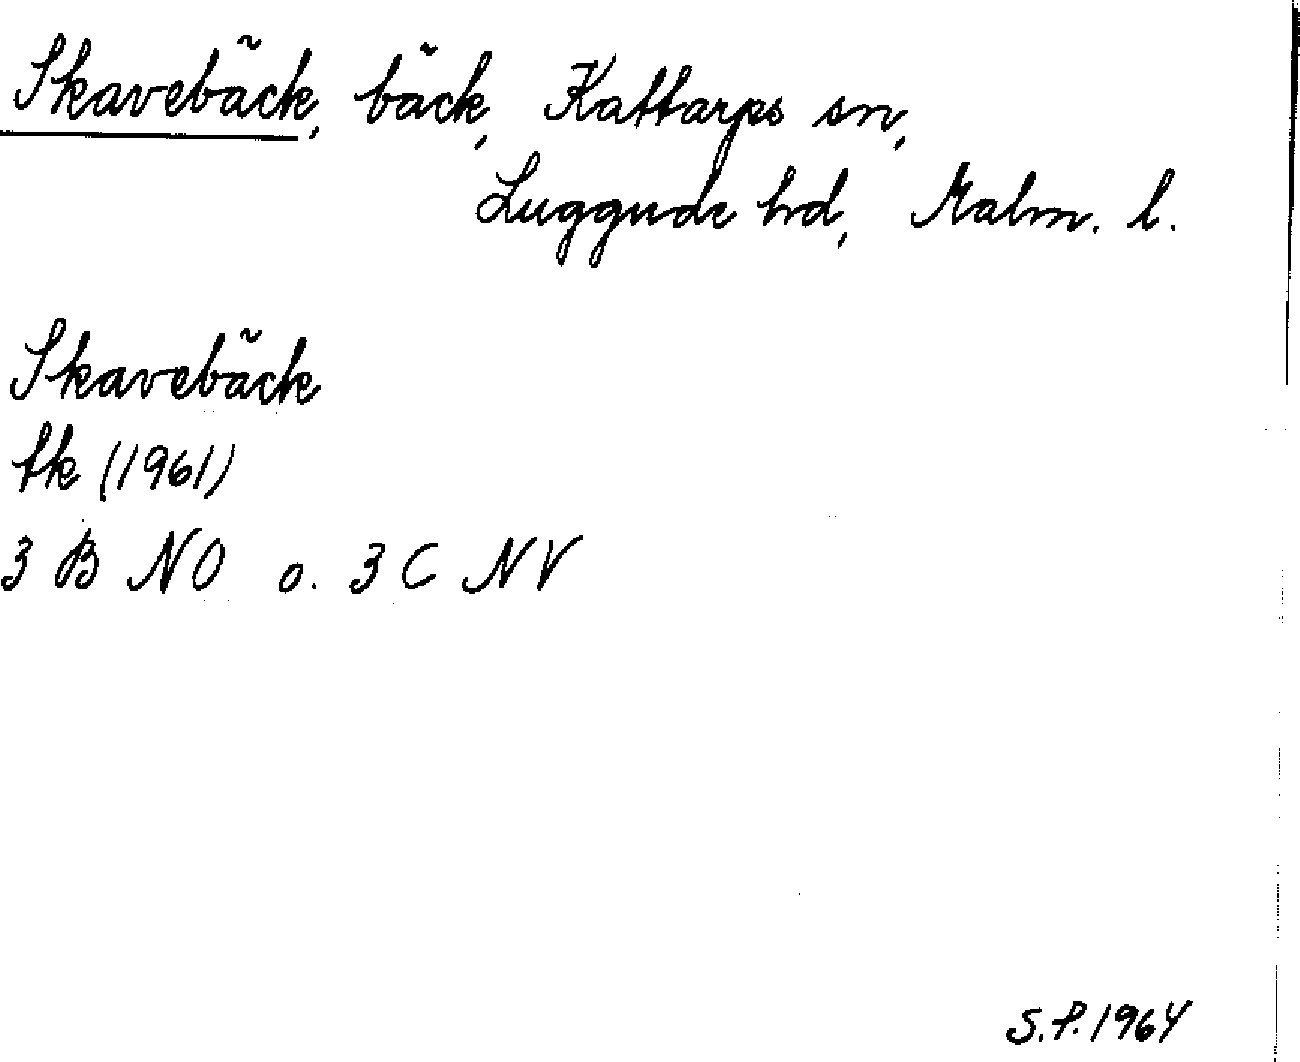 Skavebäck, bäck, Kattarps sn,
Luggude hd, Malm. l.
Skavebäck
tk (1961)
3 B NO o. 3 C NV
S.P. 1964